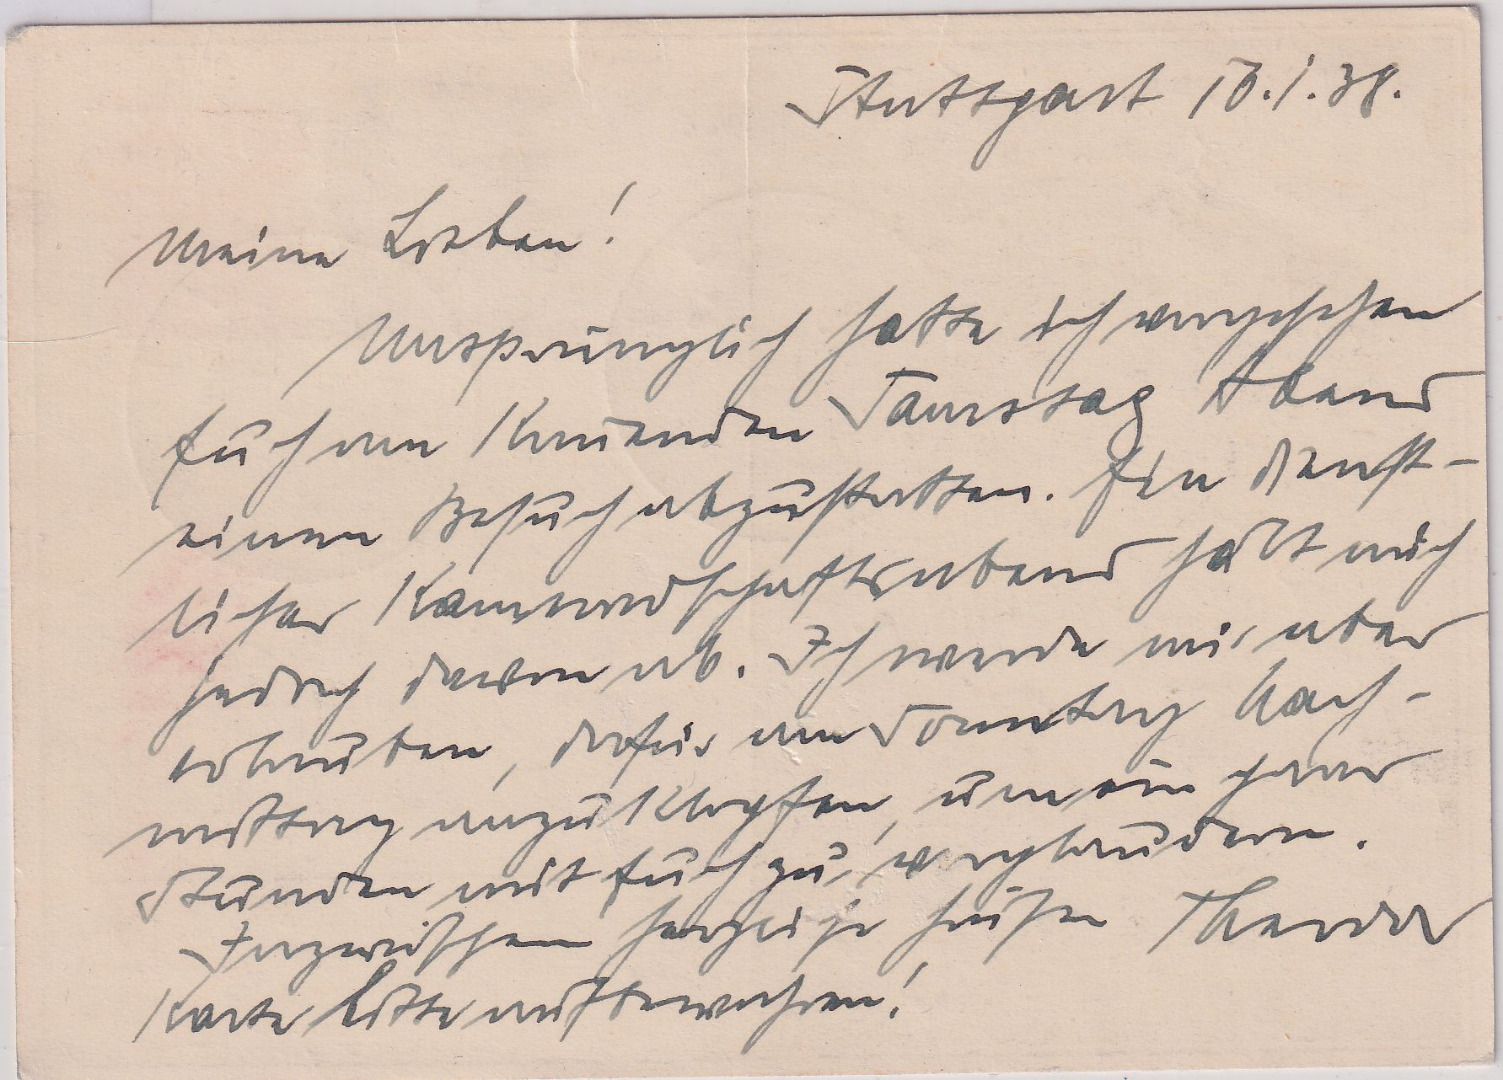 Stuttgart 13.1.38.
Meine Lieben!
Ursprünglich hatte ich vorgesehen
Euch am kommenden Samstag Abend
einen Besuch abzustatten. Ein dienst-
licher Kameradschaftsabend hält mich
jedoch davon ab. Ich werde mir aber
erlauben, dafür am Sonntag Nach-
mittag anzuklopfen, um ein paar
Stunden mit Euch zu verplaudern.
Inzwischen herzliche Grüße Theodor
Karte bitte aufbewahren!